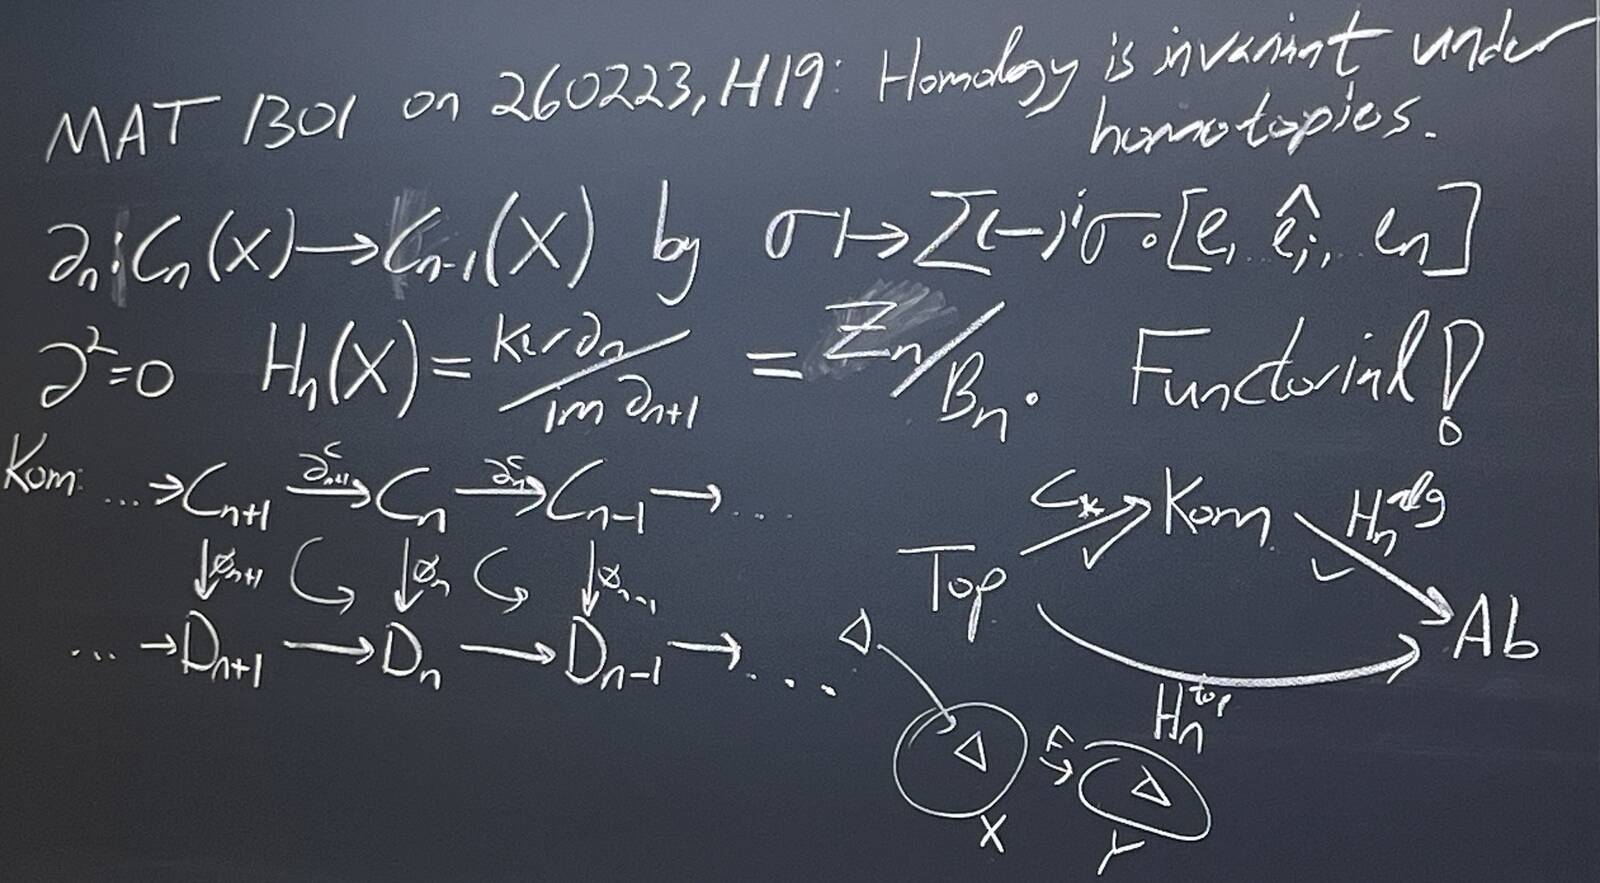 MAT 1301 on 260223, H19: Homology is invariant under
homotopies.
∂ₙ: Cₙ(X) → Cₙ₋₁(X) by σ ↦ Σ(-)ⁱ σ∘[e, .. êᵢ, .. eₙ]
∂²=0 Hₙ(X) = ker ∂ₙ / im ∂ₙ₊₁ = Zₙ/Bₙ. Functorial!
Kom: ... → Cₙ₊₁ —∂ᶜₙ₊₁→ Cₙ —∂ᶜₙ→ Cₙ₋₁ → ...
↓φₙ₊₁ ↓φₙ ↓φₙ₋₁
... → Dₙ₊₁ → Dₙ → Dₙ₋₁ → ...
C* Kom Hₙᵃˡᵍ
Top Ab
Hₙᵗᵒᵖ
Δ
Δ F → Δ
X Y